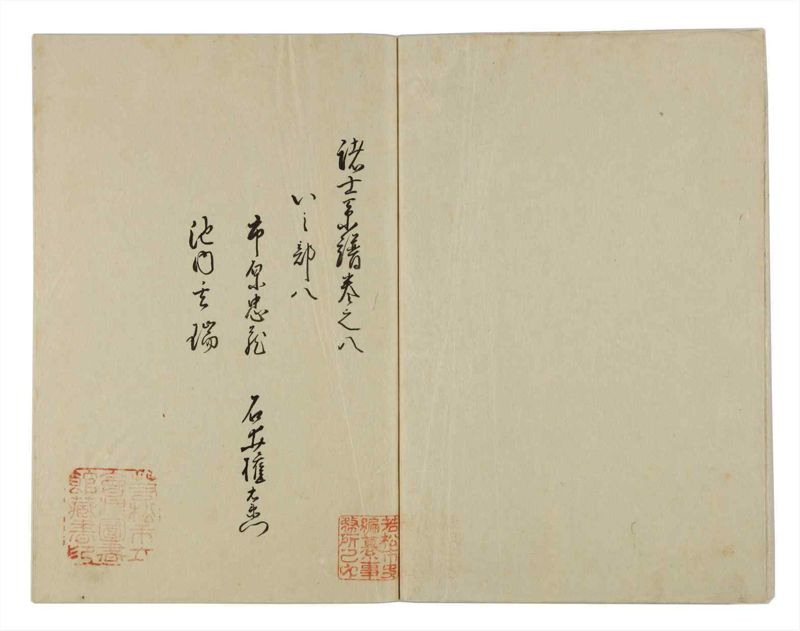 諸士系譜巻之八
い之部八
市原忠蔵　石井権左衛門
池内玄瑞
若松市史
編纂事
務所之印
若松市立
會津圖書
館藏書印